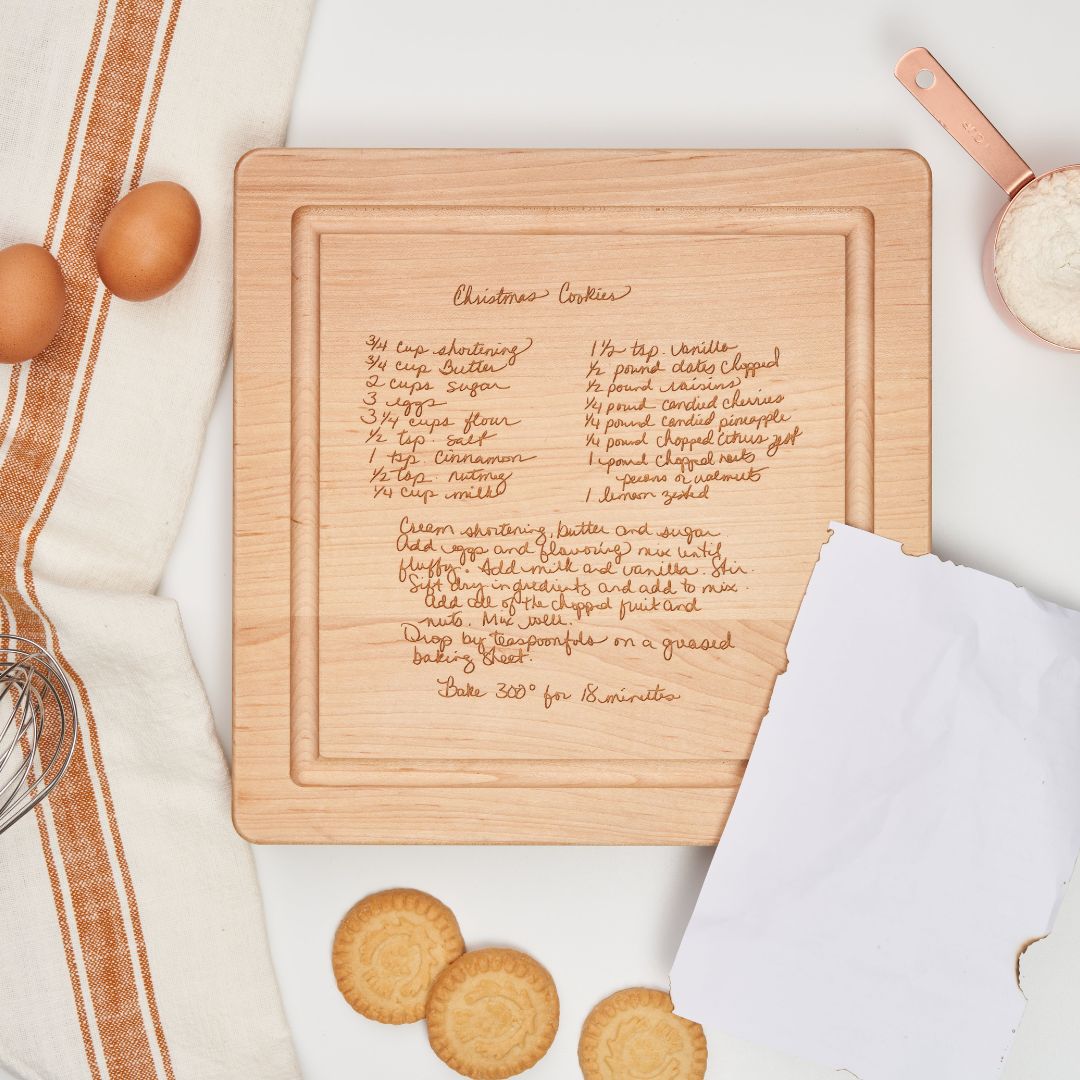 Christmas Cookies
3/4 cup shortening
3/4 cup Butter
2 cups sugar
3 eggs
3 1/4 cups flour
1/2 tsp. salt
1 tsp. Cinnamon
1/2 tsp. nutmeg
1/4 cup milk
1 1/2 tsp. vanilla
1/2 pound dates chopped
1/2 pound raisins
1/4 pound candied cherries
1/4 pound candied pineapple
1/4 pound chopped citrus zest
1 pound chopped nuts
pecans or walnuts
1 lemon zested
Cream shortening, butter and sugar
Add eggs and flavoring mix until
fluffy. Add milk and vanilla. Stir.
Sift dry ingredients and add to mix.
Add all of the chopped fruit and
nuts. Mix well.
Drop by teaspoonfuls on a greased
baking sheet.
Bake 300° for 18 minutes